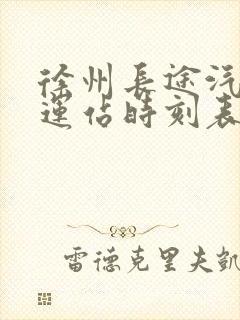 徐州長途汽
運佔時刻表
雷德克里夫凱